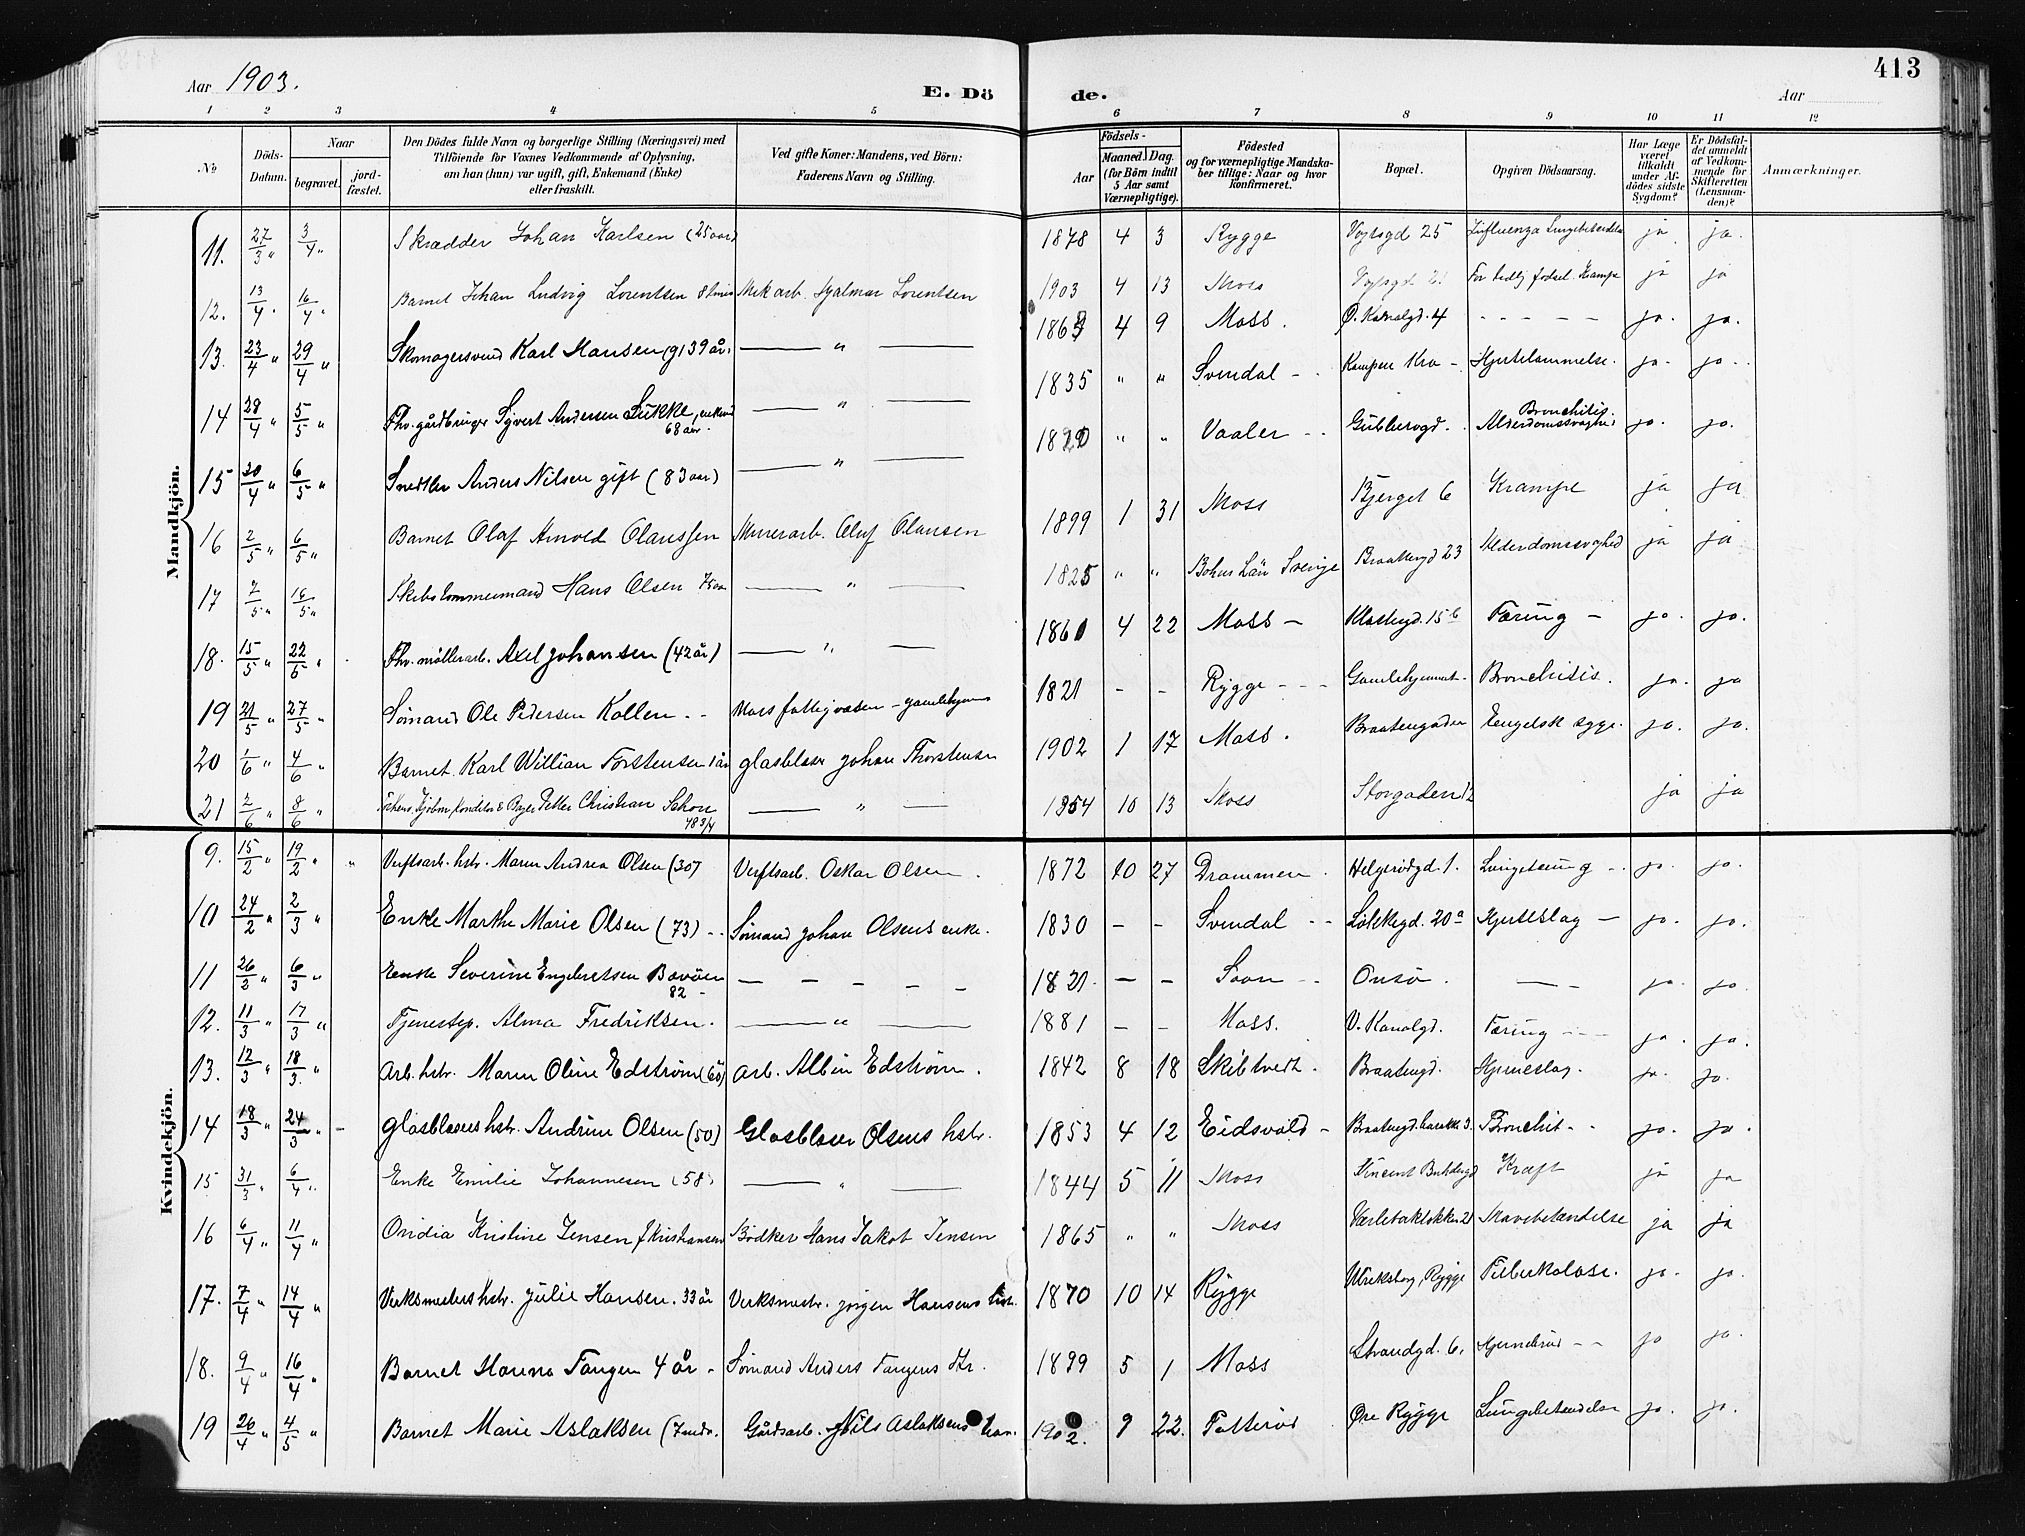 413
Aar 1903.
E. Dö de.
Aar
1 2 3 4 5 6 7 8 9 10 11 12
No
Döds-Datum.
Naar
begravet.
jord-fæstet.
Den Dödes fulde Navn og borgerlige Stilling (Næringsvei) med
Tilföiende for Voxnes Vedkommende af Oplysning,
om han (hun) var ugift, gift, Enkemand (Enke)
eller fraskilt.
Ved gifte Koner: Mandens, ved Börn:
Faderens Navn og Stilling.
Födsels-
Aar
Maaned. Dag.
(for Börn indtil
5 Aar samt
Værnepligtige).
Födested
og for værnepligtige Mandska-
ber tillige: Naar og hvor
konfirmeret.
Bopæl.
Opgiven Dödsaarsag.
Har Læge
været
tilkaldt
under Af-
dödes sidste
Sygdom?
Er Dödsfal-
det anmeldt
af Vedkom-
mende for
Skifteretten
(Lensman-
den)?
Anmærkninger.
Mandkjön.
11. 27/3 " 3/4 " Skrædder Johan Karlsen (25 aar) 1878 4 3 Rygge Vogtsgd 25 Influenza Lungebetændelse ja ja.
12. 13/4 " 16/4 " Barnet Johan Ludvig Lorentsen Mek arb. Hjalmar Lorentsen 1903 4 13 Moss For tidlig födsel. Krampe ja ja
13. 23/4 " 29/4 " Skomagersvend Karl Hansen (g) 39 år. — " — 4 9 Moss. Ø. Kanalgd. 4 - - - - - ja. ja.
14 28/4 " 5/5 " Fhv. gårdbruger Sÿvert Andersen Sukke, enkem 68 aar. — " — 1835 " " Svendal - . Kampen Kra - Hjertelammelse. ja. ja.
15 30/4 " 6/5 " Snedker Anders Nilsen gift (83 aar) — " — 1820 " " Vaaler - . Gudesgd. Bronchitis. Alderdomssvaghed ja. ja.
16 2/5 " 6/5 " Barnet Olaf Arnold Olaussen Murerarb. Oluf Olausen 1899 1 31 Moss Bjerget 6 Krampe ja ja
17 7/5 " 16/5 " Skibstømmermand Hans Olsen — " — 1825 " " Bohus Län Sverige Braategd 23 Alderdomssvaghed ja ja
18. 15/5 " 22/5 " Fhv. møllerarb. Axel Johansen (42 år) — " — 1861 4 22 Moss - Klostergd. 15 b Tæring - ja. ja.
19 21/5 " 27/5 " Sømand Ole Pedersen Kollen. - Moss fattigvæsen - gamlehjem 1821 - - Rÿgge - - - Gamlehjemmet. Bronchitis. ja. ja
20 1/6 " 4/6 " Barnet Karl William Torstensen 1 år glasblæser Johan Thorstensen 1902 1 17 Moss. Braatengaden Engelsk syge. ja. ja.
21 2/6 " 8/6 " Petter Christian Schou 48 3/4 — " — 1854 10 13 Moss Storgaden 12 ja ja
Kvindekjön.
9. 15/2 " 19/2 " " Verftsarb. hstr. Maren Andrea Olsen (30) Verftsarb. Oskar Olsen. 1872 10 27 Drammen. Helgerødgd. 1. Lungetæring - ja. ja.
10 24/2 " 2/3 " Enke Marthe Marie Olsen (73) - - Sømand Johan Olsens enke. 1830 - - Svendal - - Løkkegd. 20a Hjerteslag - ja. ja.
11 26/2 " 6/3 " Enke Severine Engebretsen Bævöen 82 - - - - - - 1821. - - Soon - - Onsø. — - ja. ja.
12. 11/3 " 17/3 " Tjenestep. Alma Fredriksen. — " — 1881 - - Moss. V. Kanalgd. Tæring - - - ja. ja.
13. 12/3 " 18/3. " Arb. hstr. Maren Oline Edstrøm (60) Arb. Albin Edstrøm. 1842 8 18 Skibtvedt. Braatengd. Hjerneslag. ja. ja.
14 18/3 " 24/3 " - Glasblæsers hstr. Andrine Olsen (50) Glasblæser Olsens hstr. 1853 4 12 Eidsvold - Braatengd. barakke 3. Bronchit - - ja. ja.
15 31/3 " 6/4 " Enke Emilie Johannesen (58) — " — 1844 5 11 Moss Vincent Buddesgd Kræft ja ja
16 6/4 " 11/4 " Ovidia Kristine Jensen f Kristiansen Bödker Hans Jakob Jensen 1865 " " Moss Værlebakløkken 21 Mavebetændelse ja ja
17. 7/4 " 14/4 " Verksmesters hstr. Julie Hansen. 33 år Verksmestr. Jørgen Hansens hstr. 1870 10 14 Rÿgge Ulriksborg, Rÿgge Tuberkulose. ja. ja.
18. 9/4 " 16/4 " Barnet Marena Tangen 4 år - Sømand Anders Tangens dtr. 1899 5 1 Moss Strandgd. 6. - - ja ja.
19 26/4 " 4/5 " Barnet Marie Aslaksen (7 mdr. Gårdsarb. Nils Aslaksens 1902. 9 22. Tatterød Øre Rÿgge Lungebetændelse ja. ja.